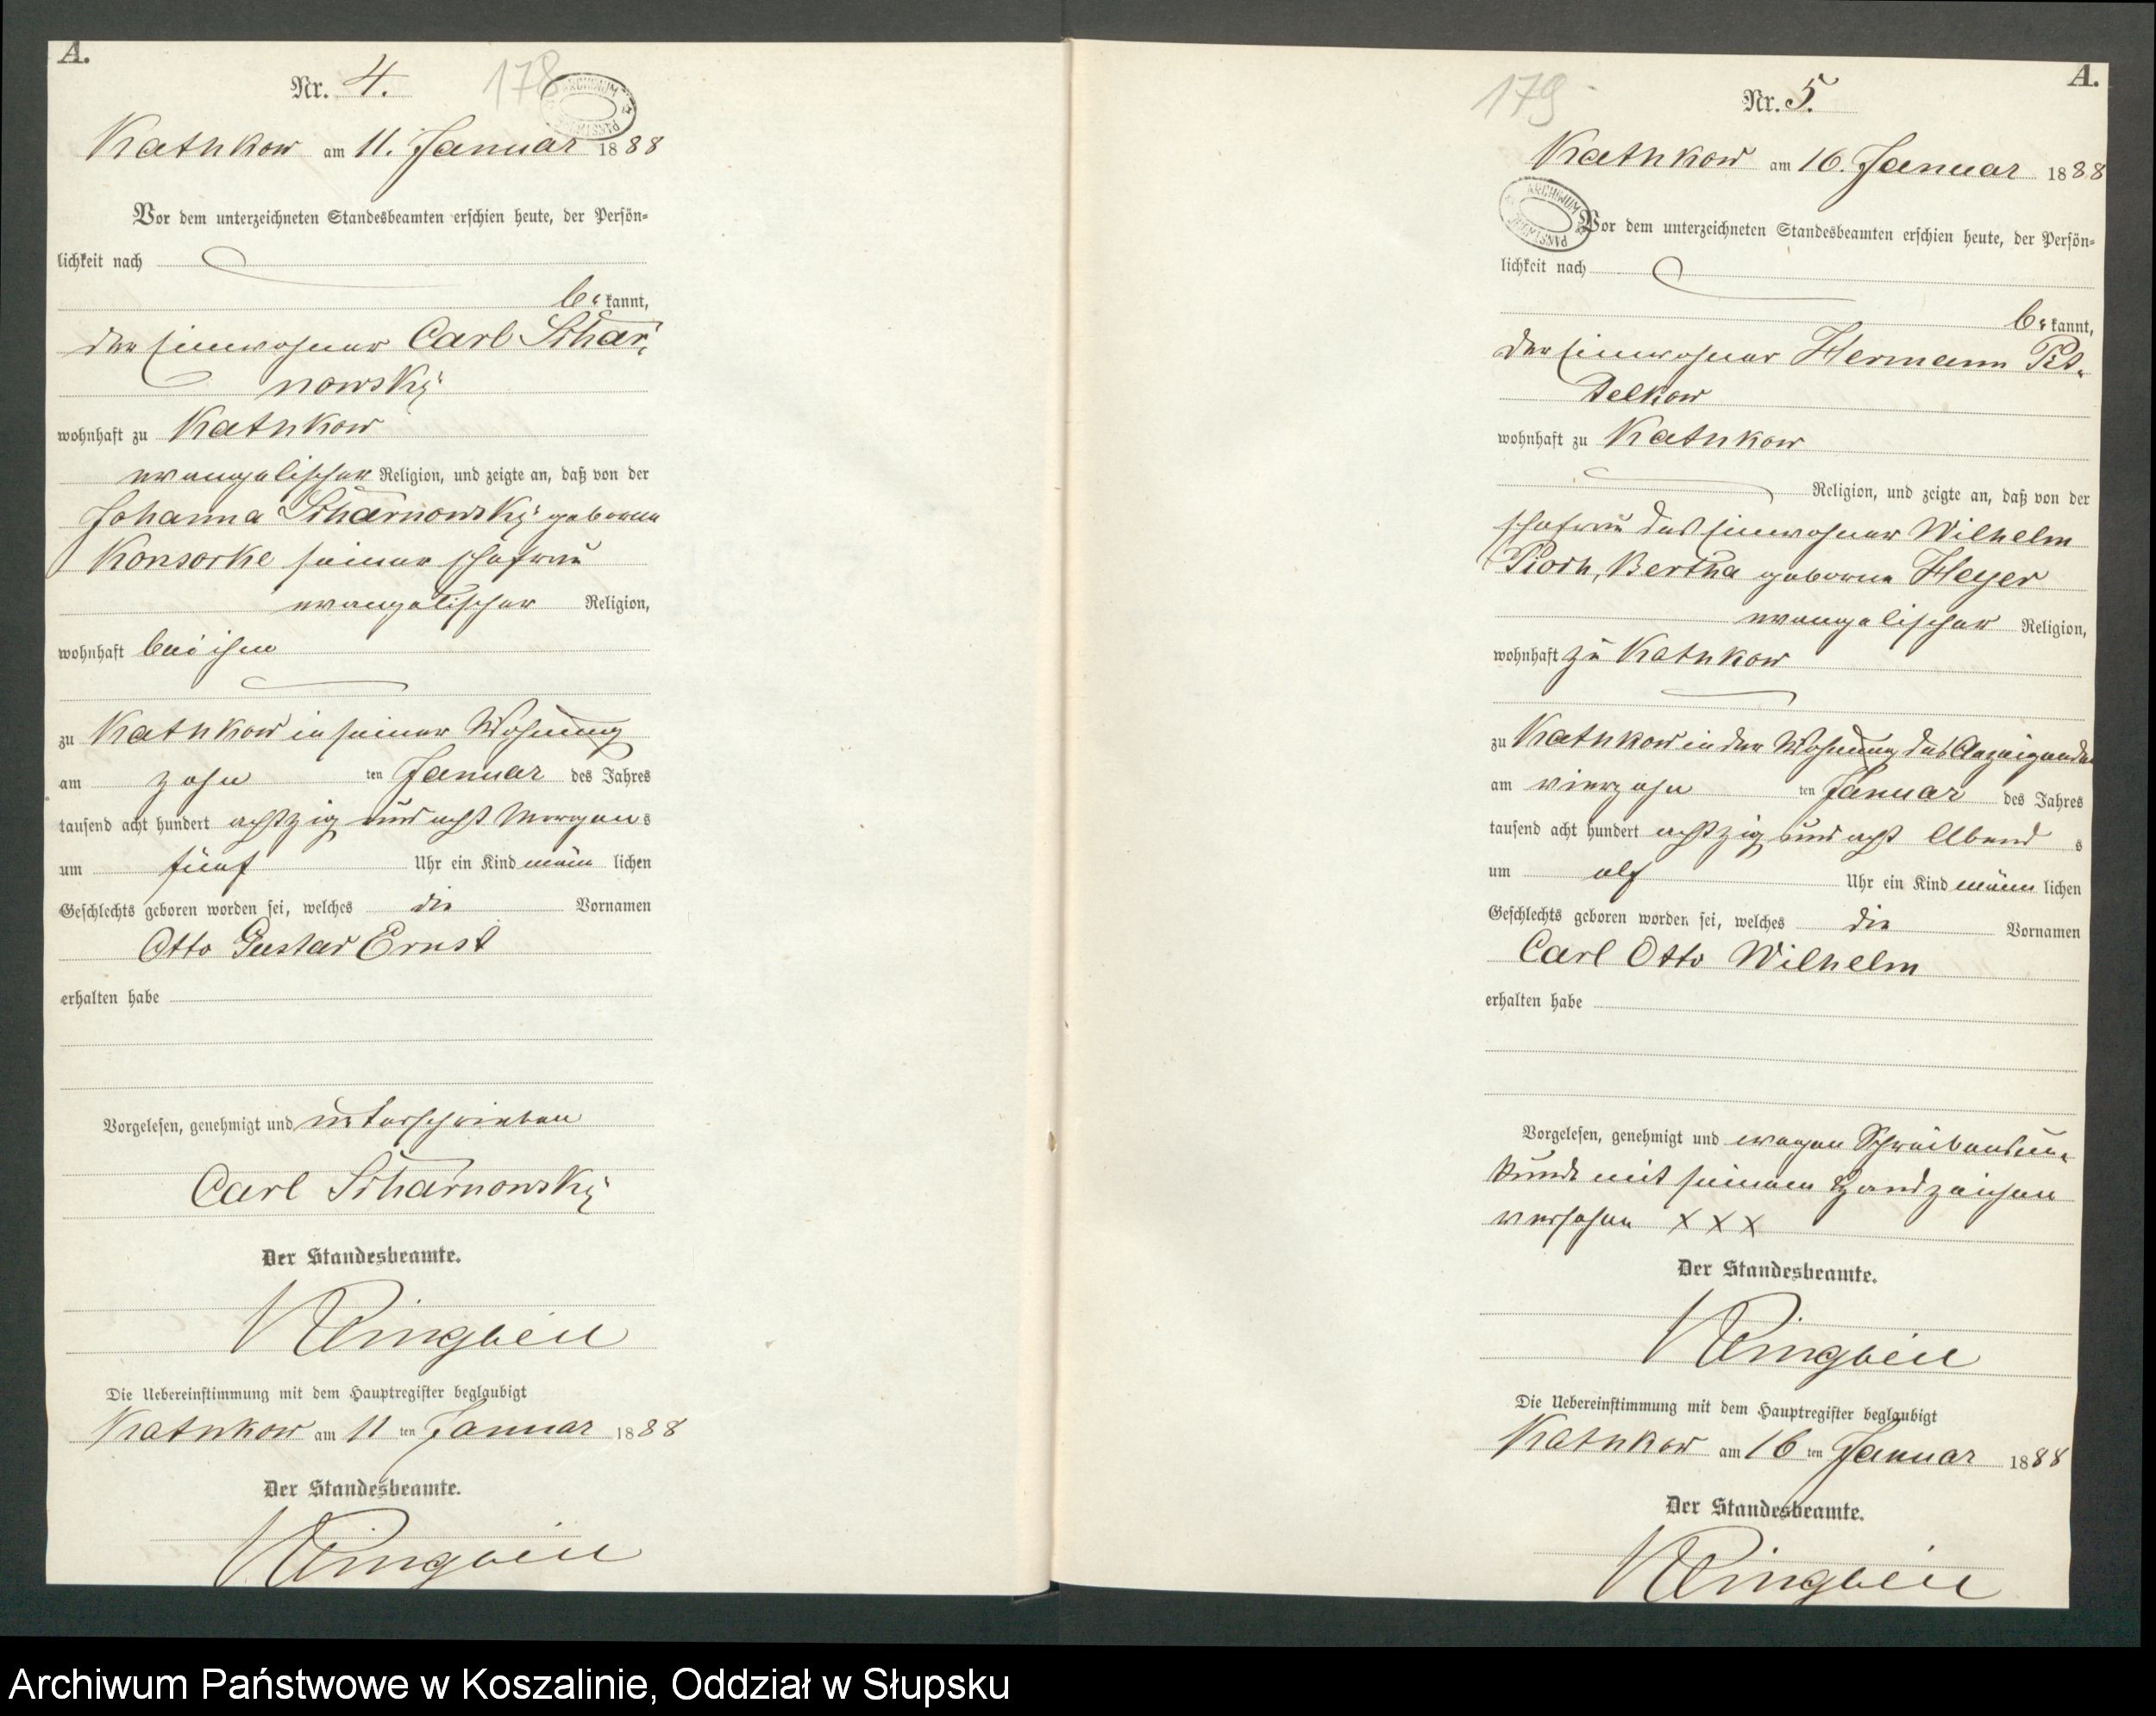 A.
Nr. 4.
178
ARCHIWUM
PAŃSTWOWE
Kathkow am 11. Januar 1888
Vor dem unterzeichneten Standesbeamten erschien heute, der Persön=
lichkeit nach
be kannt,
der Einwohner Carl Schar=
nowsky
wohnhaft zu Kathkow
evangelischer Religion, und zeigte an, daß von der
Johanna Scharnowsky geborene
Konsorke seiner Ehefrau
evangelischer Religion,
wohnhaft bei ihm
zu Kathkow in seiner Wohnung
am zehn ten Januar des Jahres
tausend acht hundert achtzig und acht Morgens
um fünf Uhr ein Kind männ lichen
Geschlechts geboren worden sei, welches die Vornamen
Otto Gustav Ernst
erhalten habe
Vorgelesen, genehmigt und unterschrieben
Carl Scharnowsky
Der Standesbeamte.
Die Uebereinstimmung mit dem Hauptregister beglaubigt
Kathkow am 11 ten Januar 1888
Der Standesbeamte.
A.
Nr. 5.
179
ARCHIWUM
PAŃSTWOWE
Kathkow am 16. Januar 1888
Vor dem unterzeichneten Standesbeamten erschien heute, der Persön=
lichkeit nach
be kannt,
der Einwohner Hermann Pet=
telkow
wohnhaft zu Kathkow
Religion, und zeigte an, daß von der
Ehefrau des Einwohner Wilhelm
Bertha geborene Heyer
evangelischer Religion,
wohnhaft zu Kathkow
zu Kathkow in der Wohnung des Anzeigenden
am vierzehn ten Januar des Jahres
tausend acht hundert achtzig und acht Abend s
um elf Uhr ein Kind männ lichen
Geschlechts geboren worden sei, welches die Vornamen
Carl Otto Wilhelm
erhalten habe
Vorgelesen, genehmigt und wegen Schreibensun=
kunde mit seinem Handzeichen
versehen X X X
Der Standesbeamte.
Die Uebereinstimmung mit dem Hauptregister beglaubigt
Kathkow am 16 ten Januar 1888
Der Standesbeamte.
Archiwum Państwowe w Koszalinie, Oddział w Słupsku